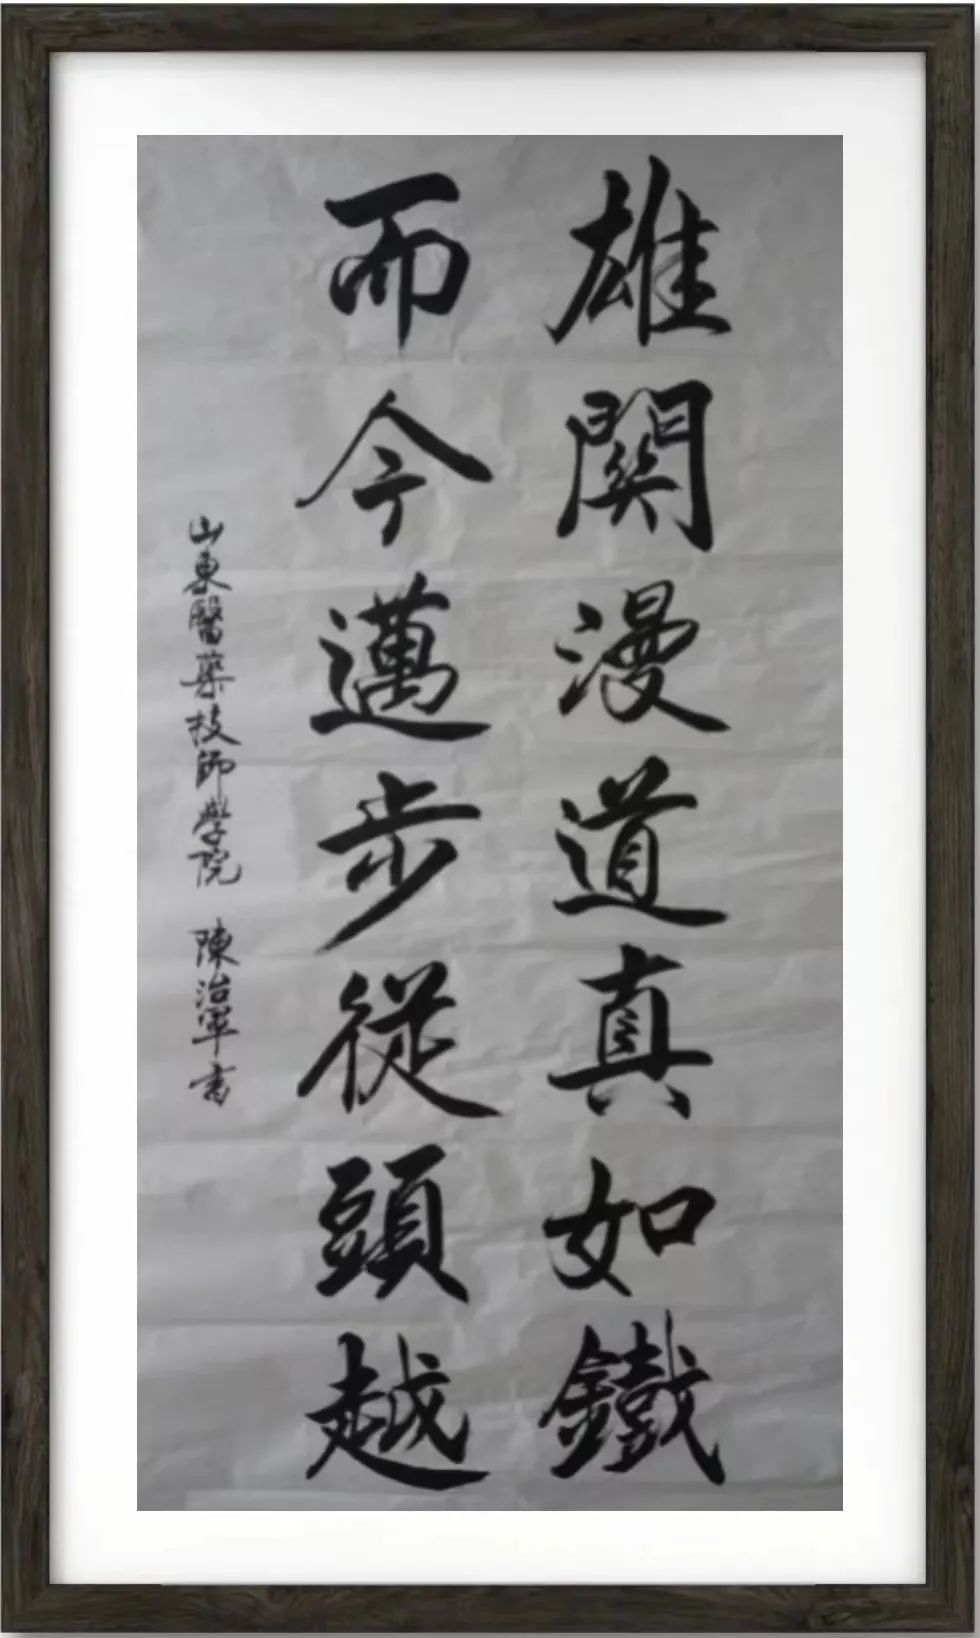 雄關漫道真如鐵
而今邁步從頭越
山東醫藥技師學院 陳治軍書